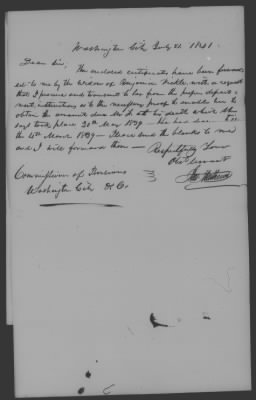 Washington City July 21 1841
Dear Sir,
The enclosed certificates have been forward
ed to me by the widow of Benjamin, with a request
that I procure and transmit to her from the proper depart-
ment, instructions as to the necessary proof to enable her to
obtain the amount due Mr. at his death which she
says took place 20th May 1839 - He had due to
the 4th March 1839 - Please send the blanks to me
and I will forward them -
Respectfully Your
Obt Servant
Commissioner of Pensions
Washington City